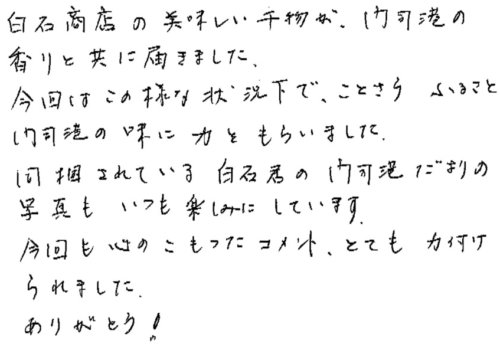 白石商店の美味しい干物が、門司港の
香りと共に届きました。
今回はこの様な状況下で、ことさら ふるさと
門司港の味に力をもらいました。
同梱されている白石君の門司港だよりの
写真もいつも楽しみにしています。
今回も心のこもったコメント、とても力付け
られました。
ありがとう！